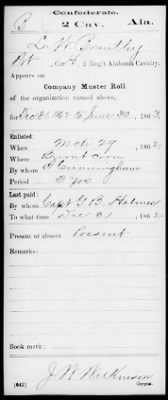 Confederate.
B 2 Cav. Ala.
L. W. Brantley
Pvt, Co. 2 Reg't Alabama Cavalry.
Appears on
Company Muster Roll
of the organization named above,
for Dec 31 1862 to June 30, 186
Enlisted:
When Mch 29, 186
Where
By whom Cunningham
Period 3 yrs
Last paid:
By whom Capt. G. B. Holmes
To what time Dec 31, 186
Present or absent Present
Remarks:
Book mark:
(642) Copyist.